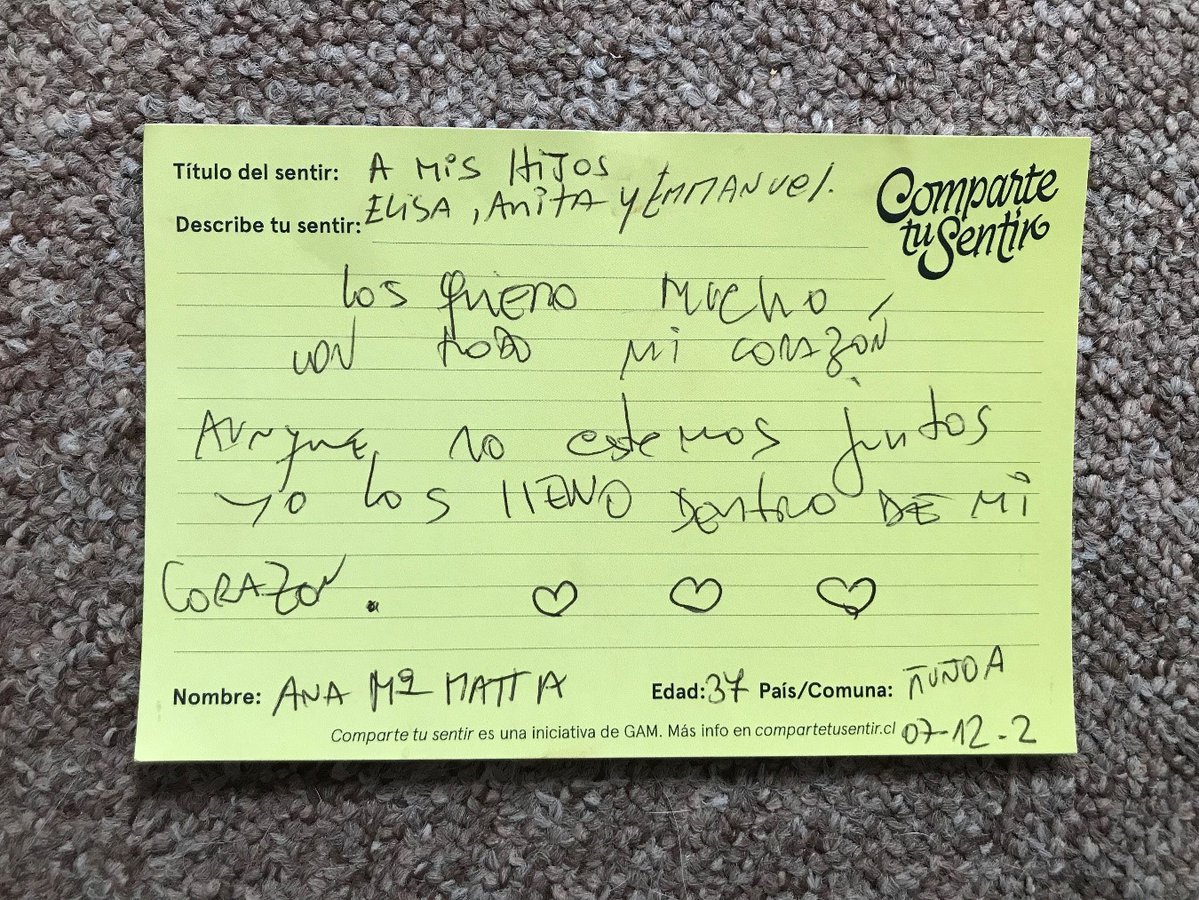 Título del sentir: A MIS HIJOS
ELISA, ANITA Y EMMANUEL.
Comparte
tu Sentir
Describe tu sentir:
LOS QUIERO MUCHO,
CON TODO MI CORAZÓN
AUNQUE NO estemos juntos
YO LOS LLEVO DENTRO DE MI
CORAZON.
Nombre: ANA Mª MATTA Edad: 37 País/Comuna: ÑUÑOA
Comparte tu sentir es una iniciativa de GAM. Más info en compartetusentir.cl 07-12-2